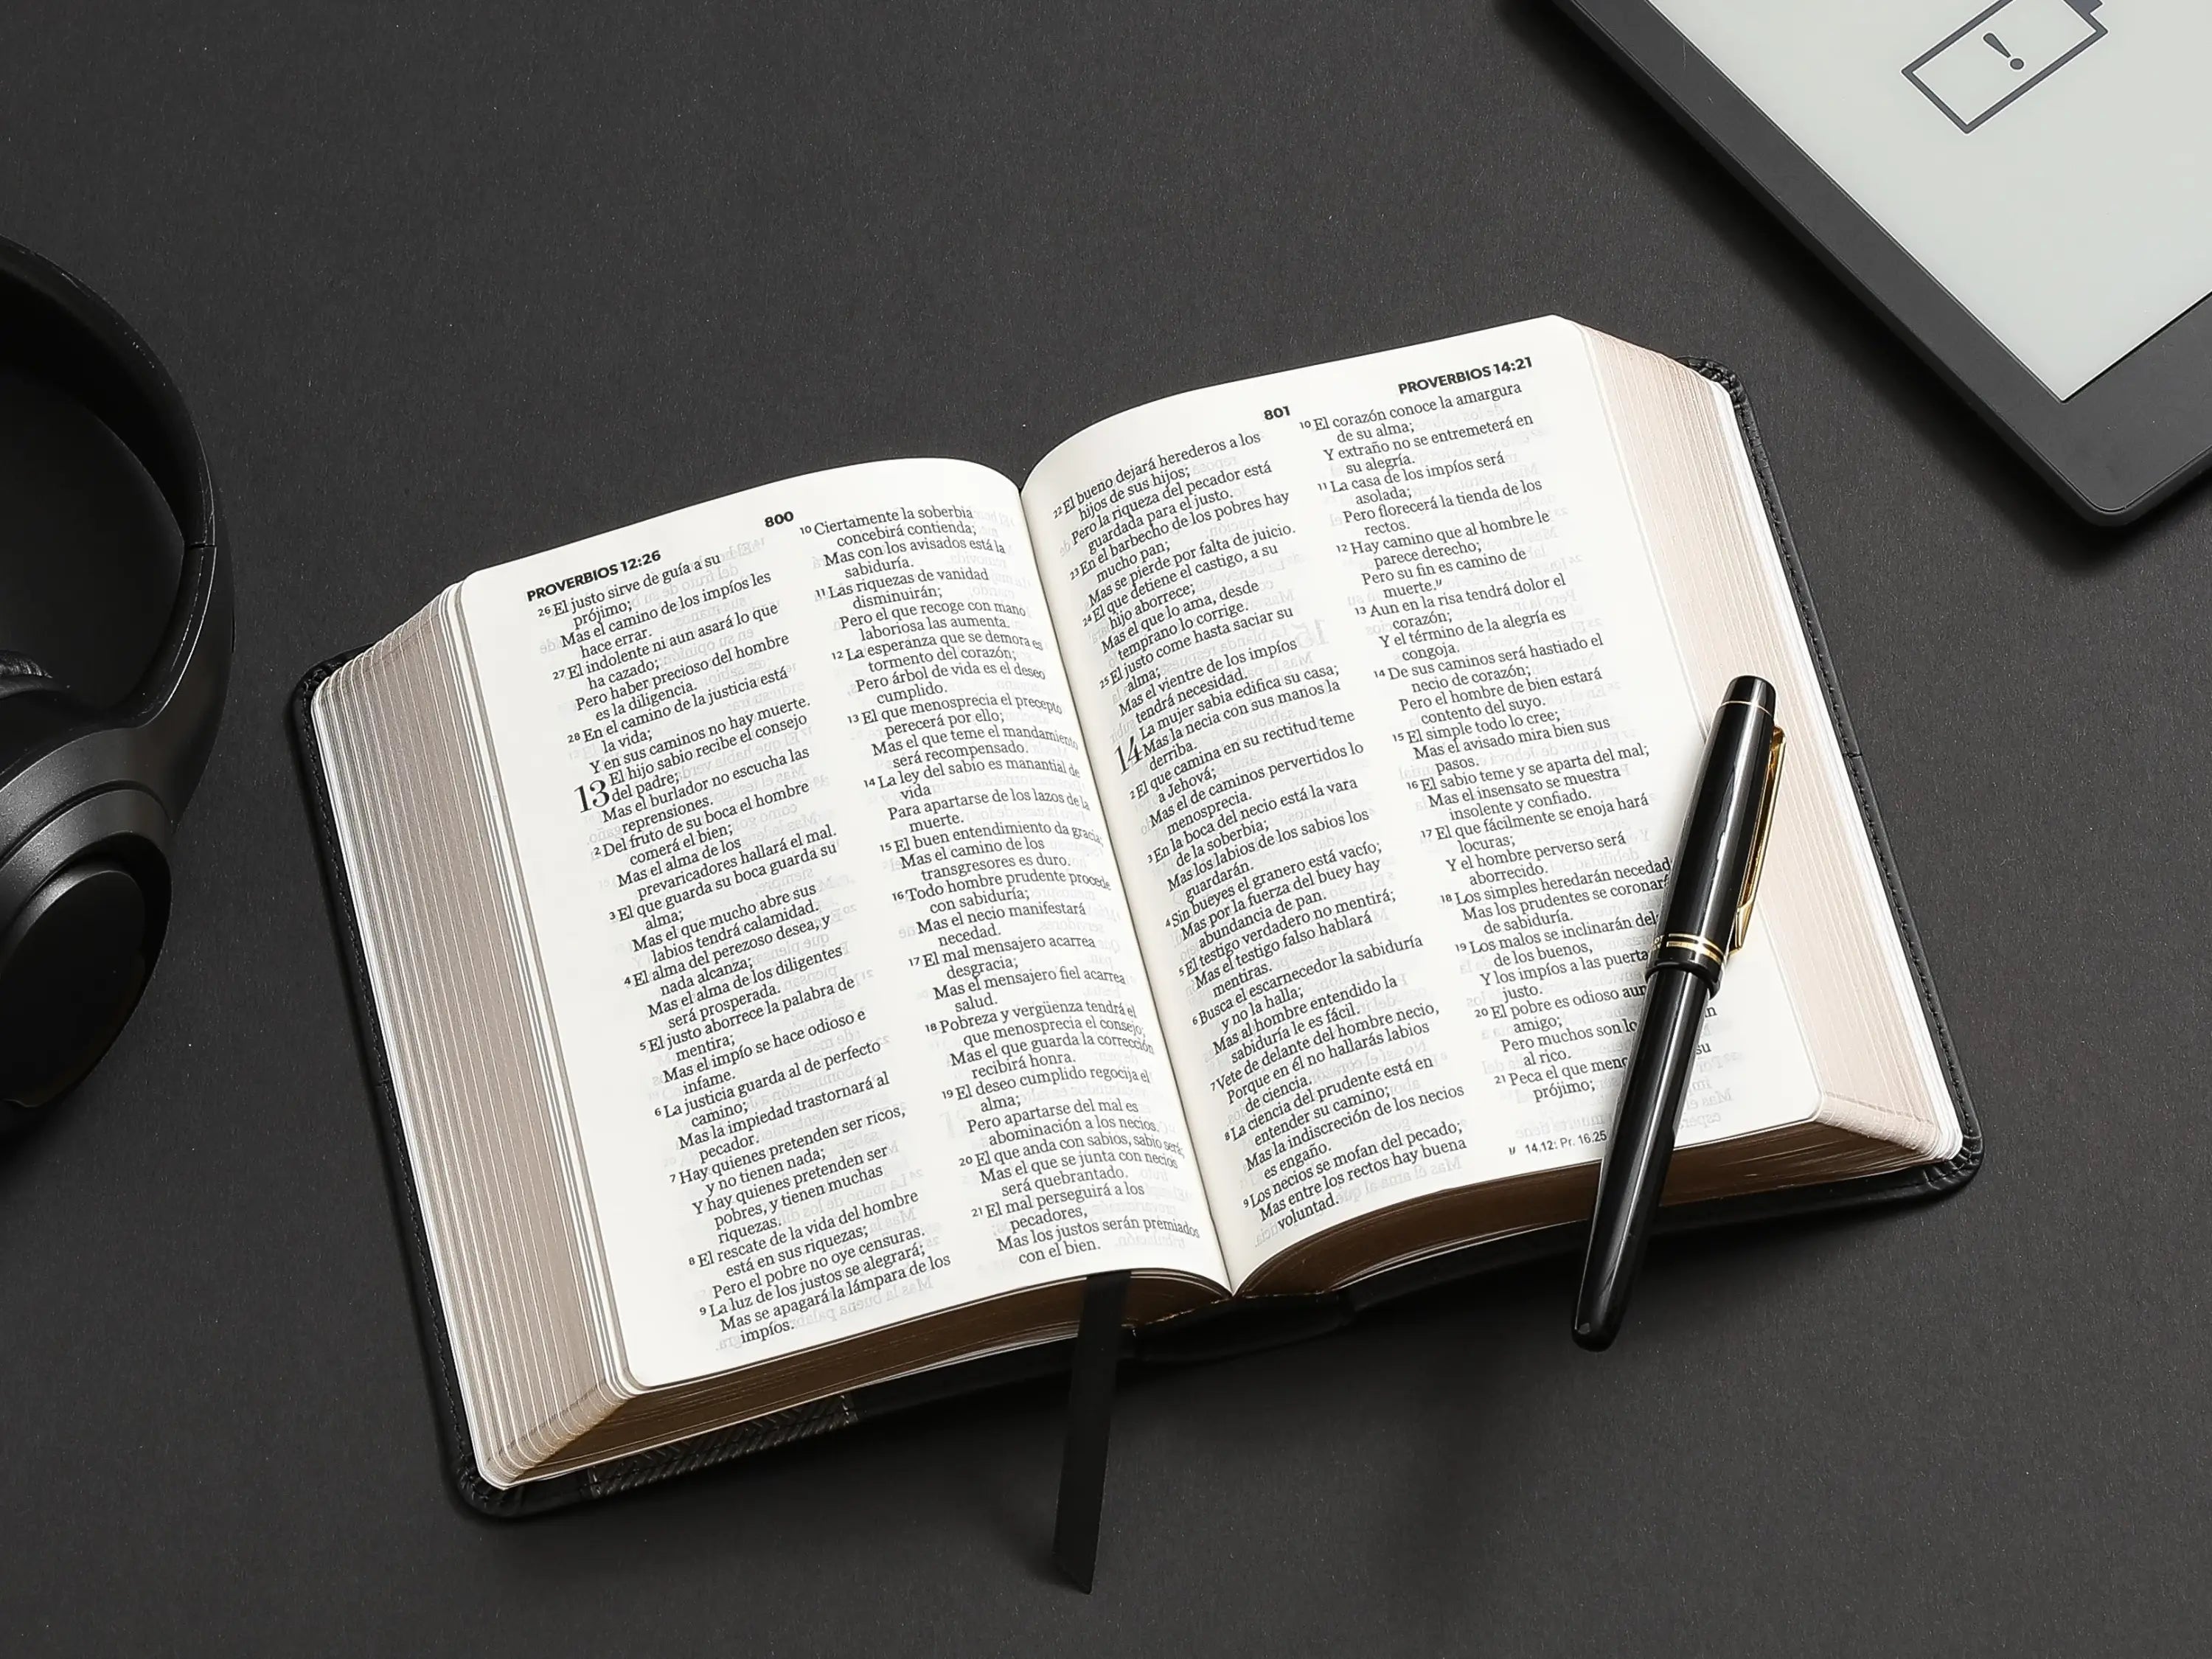 PROVERBIOS 12:26
800
26 El justo sirve de guía a su
prójimo;
Mas el camino de los impíos les
hace errar.
27 El indolente ni aun asará lo que
ha cazado;
Pero haber precioso del hombre
es la diligencia.
28 En el camino de la justicia está
la vida;
Y en sus caminos no hay muerte.
13 El hijo sabio recibe el consejo
del padre;
Mas el burlador no escucha las
reprensiones.
2 Del fruto de su boca el hombre
comerá el bien;
Mas el alma de los
prevaricadores hallará el mal.
3 El que guarda su boca guarda su
alma;
Mas el que mucho abre sus
labios tendrá calamidad.
4 El alma del perezoso desea, y
nada alcanza;
Mas el alma de los diligentes
será prosperada.
5 El justo aborrece la palabra de
mentira;
Mas el impío se hace odioso e
infame.
6 La justicia guarda al de perfecto
camino;
Mas la impiedad trastornará al
pecador.
7 Hay quienes pretenden ser ricos,
y no tienen nada;
Y hay quienes pretenden ser
pobres, y tienen muchas
riquezas.
8 El rescate de la vida del hombre
está en sus riquezas;
Pero el pobre no oye censuras.
9 La luz de los justos se alegrará;
Mas se apagará la lámpara de los
impíos.
10 Ciertamente la soberbia
concebirá contienda;
Mas con los avisados está la
sabiduría.
11 Las riquezas de vanidad
disminuirán;
Pero el que recoge con mano
laboriosa las aumenta.
12 La esperanza que se demora es
tormento del corazón;
Pero árbol de vida es el deseo
cumplido.
13 El que menosprecia el precepto
perecerá por ello;
Mas el que teme el mandamiento
será recompensado.
14 La ley del sabio es manantial de
vida
Para apartarse de los lazos de la
muerte.
15 El buen entendimiento da gracia;
Mas el camino de los
transgresores es duro.
16 Todo hombre prudente procede
con sabiduría;
Mas el necio manifestará
necedad.
17 El mal mensajero acarrea
desgracia;
Mas el mensajero fiel acarrea
salud.
18 Pobreza y vergüenza tendrá el
que menosprecia el consejo;
Mas el que guarda la corrección
recibirá honra.
19 El deseo cumplido regocija el
alma;
Pero apartarse del mal es
abominación a los necios.
20 El que anda con sabios, sabio será;
Mas el que se junta con necios
será quebrantado.
21 El mal perseguirá a los
pecadores,
Mas los justos serán premiados
con el bien.
801
PROVERBIOS 14:21
22 El bueno dejará herederos a los
hijos de sus hijos;
Pero la riqueza del pecador está
guardada para el justo.
23 En el barbecho de los pobres hay
mucho pan;
Mas se pierde por falta de juicio.
24 El que detiene el castigo, a su
hijo aborrece;
Mas el que lo ama, desde
temprano lo corrige.
25 El justo come hasta saciar su
alma;
Mas el vientre de los impíos
tendrá necesidad.
14 La mujer sabia edifica su casa;
Mas la necia con sus manos la
derriba.
2 El que camina en su rectitud teme
a Jehová;
Mas el de caminos pervertidos lo
menosprecia.
3 En la boca del necio está la vara
de la soberbia;
Mas los labios de los sabios los
guardarán.
4 Sin bueyes el granero está vacío;
Mas por la fuerza del buey hay
abundancia de pan.
5 El testigo verdadero no mentirá;
Mas el testigo falso hablará
mentiras.
6 Busca el escarnecedor la sabiduría
y no la halla;
Mas al hombre entendido la
sabiduría le es fácil.
7 Vete de delante del hombre necio,
Porque en él no hallarás labios
de ciencia.
8 La ciencia del prudente está en
entender su camino;
Mas la indiscreción de los necios
es engaño.
9 Los necios se mofan del pecado;
Mas entre los rectos hay buena
voluntad.
10 El corazón conoce la amargura
de su alma;
Y extraño no se entremeterá en
su alegría.
11 La casa de los impíos será
asolada;
Pero florecerá la tienda de los
rectos.
12 Hay camino que al hombre le
parece derecho;
Pero su fin es camino de
muerte.
13 Aun en la risa tendrá dolor el
corazón;
Y el término de la alegría es
congoja.
14 De sus caminos será hastiado el
necio de corazón;
Pero el hombre de bien estará
contento del suyo.
15 El simple todo lo cree;
Mas el avisado mira bien sus
pasos.
16 El sabio teme y se aparta del mal;
Mas el insensato se muestra
insolente y confiado.
17 El que fácilmente se enoja hará
locuras;
Y el hombre perverso será
aborrecido.
18 Los simples heredarán necedad
Mas los prudentes se coronará
de sabiduría.
19 Los malos se inclinarán del
de los buenos,
Y los impíos a las puerta
justo.
20 El pobre es odioso aun
amigo;
Pero muchos son lo
al rico.
21 Peca el que men su
prójimo;
14.12: Pr. 16.25